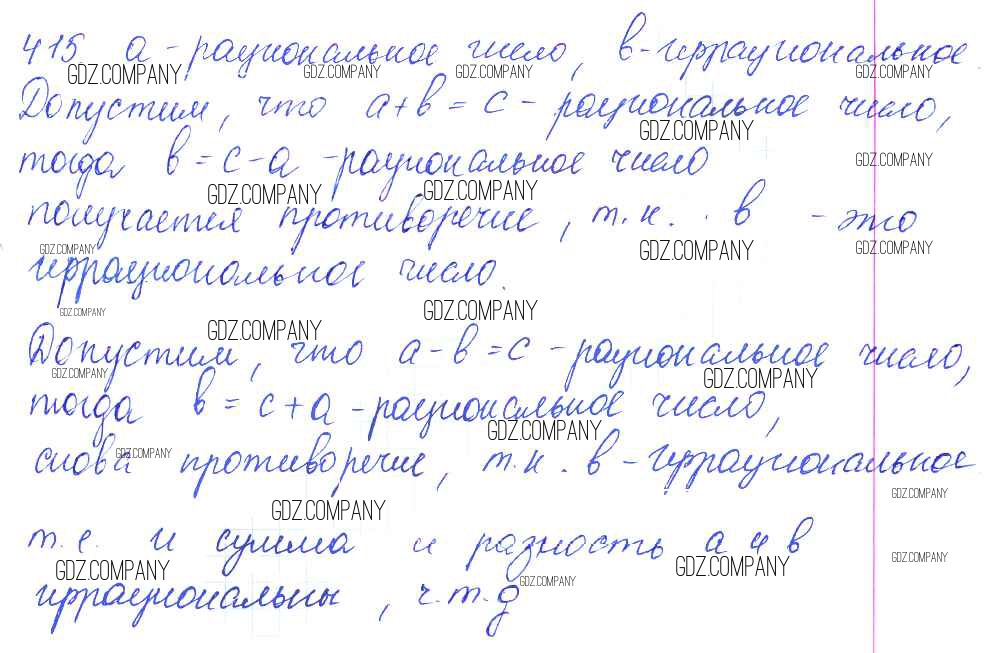 415 а - рациональное число, в - иррациональное
GDZ.COMPANY GDZ.COMPANY GDZ.COMPANY GDZ.COMPANY
Допустим, что а+в = с - рациональное число,
GDZ.COMPANY
тогда в = с-а - рациональное число
GDZ.COMPANY
GDZ.COMPANY GDZ.COMPANY
получается противоречие, т.к. в - это
GDZ.COMPANY GDZ.COMPANY GDZ.COMPANY
иррациональное число.
GDZ.COMPANY GDZ.COMPANY
GDZ.COMPANY
Допустим, что а-в = с - рациональное число,
GDZ.COMPANY GDZ.COMPANY
тогда в = с+а - рациональное число,
GDZ.COMPANY
снова противоречие, т.к. в - иррациональное
GDZ.COMPANY
GDZ.COMPANY
GDZ.COMPANY
т.е. и сумма и разность а и в
GDZ.COMPANY GDZ.COMPANY GDZ.COMPANY
иррациональны, ч.т.д
GDZ.COMPANY